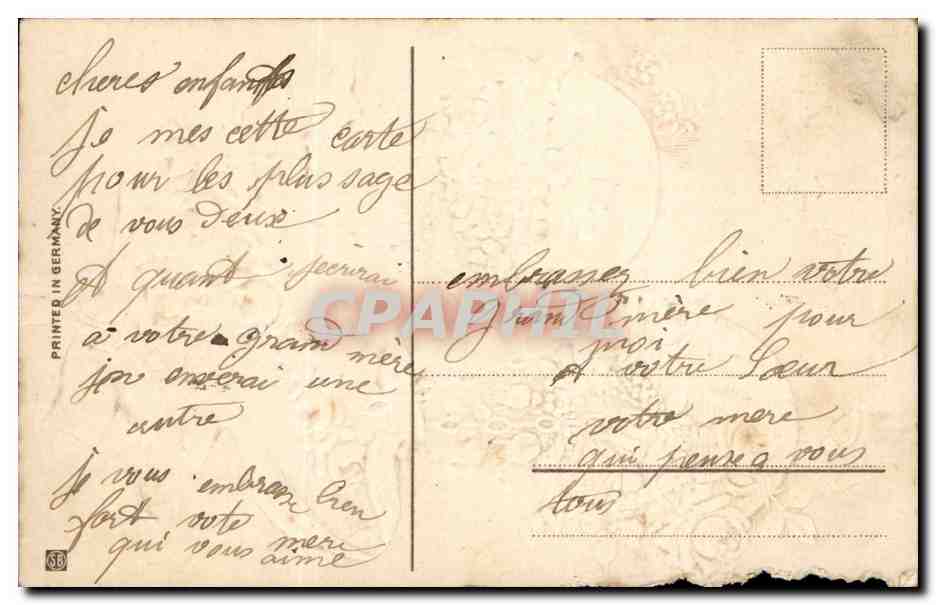 cheres enfants
je mes cette carte
pour les plus sage
de vous deux
et quant jecrirai
a votre grand mère
jen enverai une
autre
je vous embrasse bien
fort vote mere
qui vous aime
embrassez bien votre
Grand mère pour
moi
et votre Sœur
votre mere
qui pense a vous
tous
PRINTED IN GERMANY.
SB
CPAPHIL